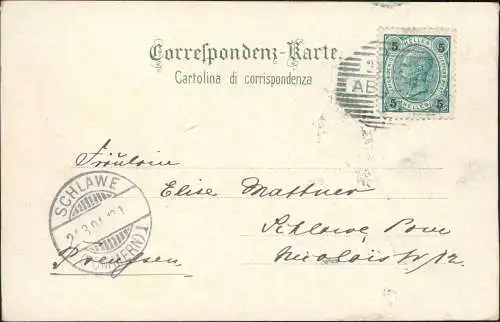 Correspondenz-Karte.
Cartolina di corrispondenza
5 5
HELLER
5 5
AB
Fräulein
SCHLAWE
Elise Mattner
Schlawe Pom
Preussen
Nicolaistr 12
(POMMERN) 1